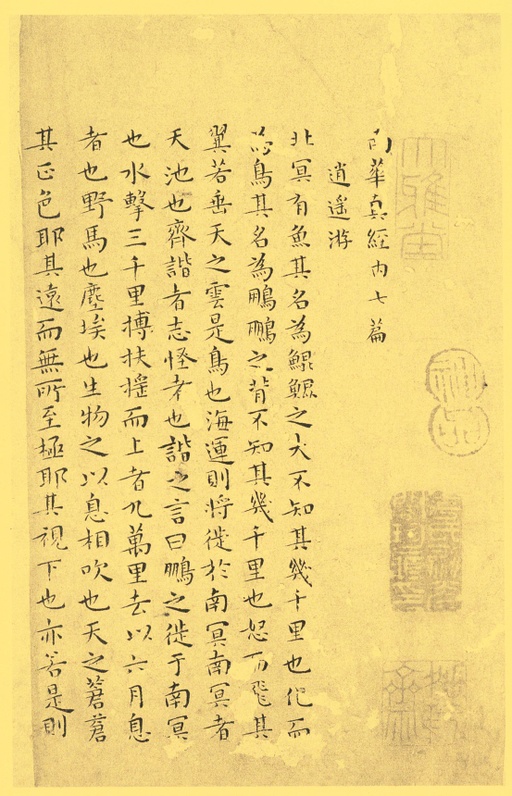 大雅堂
神品
南華真經內七篇
逍遙游
北冥有魚其名為鯤鯤之大不知其幾千里也化而
為鳥其名為鵬鵬之背不知其幾千里也怒而飛其
翼若垂天之雲是鳥也海運則將徙於南冥南冥者
天池也齊諧者志怪者也諧之言曰鵬之徙于南冥
也水擊三千里搏扶搖而上者九萬里去以六月息
者也野馬也塵埃也生物之以息相吹也天之蒼蒼
其正色耶其遠而無所至極耶其視下也亦若是則